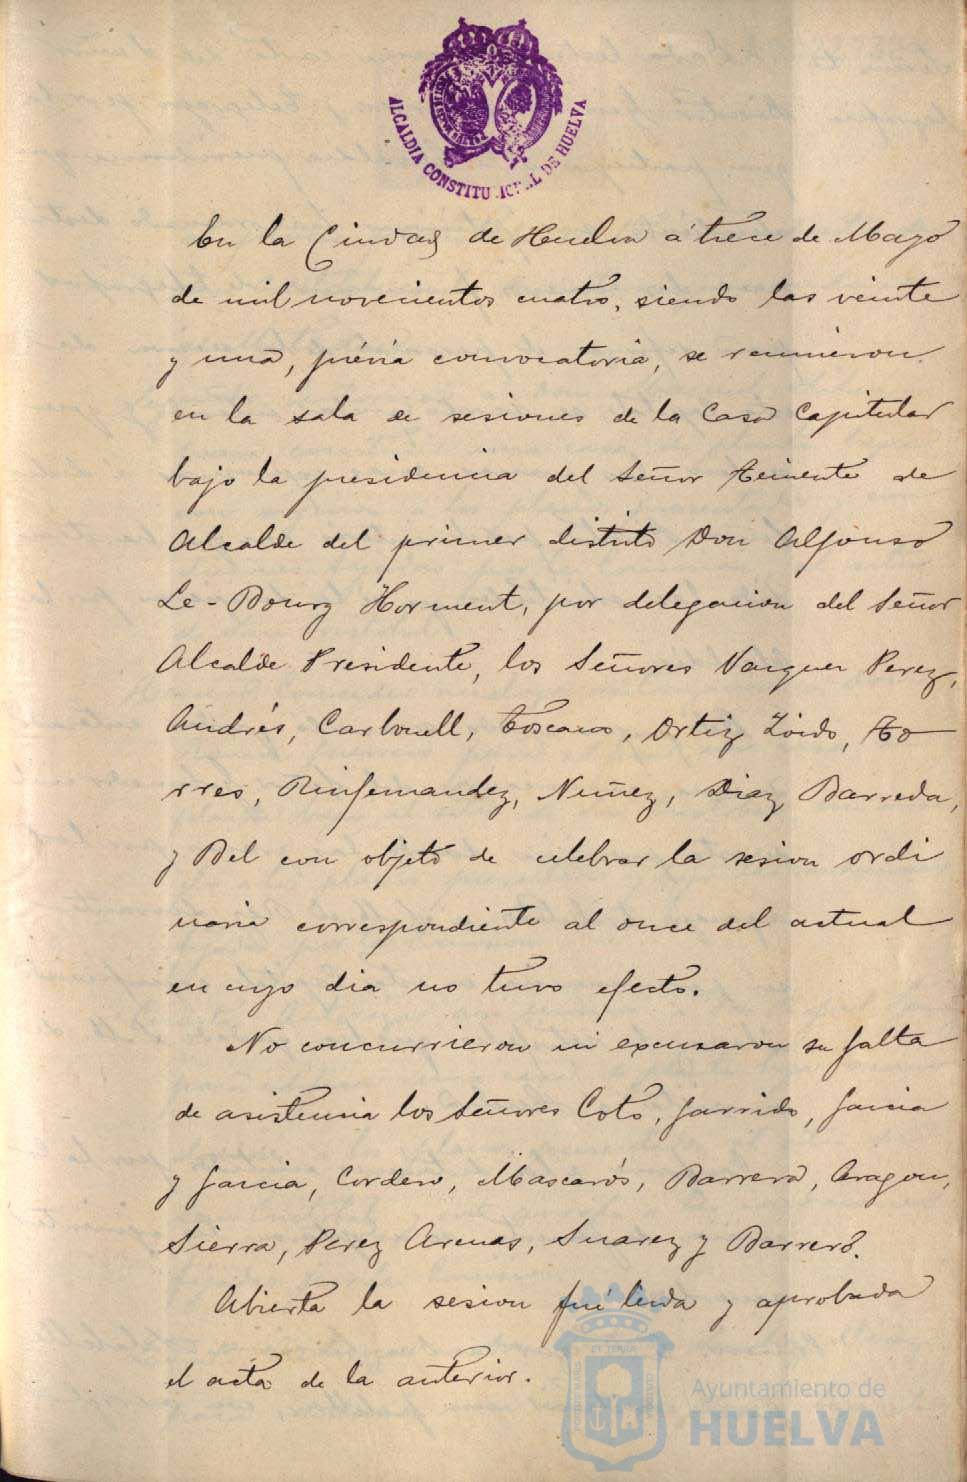 ALCALDIA CONSTITUCIONAL DE HUELVA
En la Ciudad de Huelva á trece de Mayo
de mil novecientos cuatro, siendo las veinte
y una, prévia convocatoria, se reunieron
en la sala de sesiones de la Casa Capitular
bajo la presidencia del Señor Teniente de
Alcalde del primer distrito Don Alfonso
Le-Bourg Horment, por delegacion del Señor
Alcalde Presidente, los Señores Vazquez Perez,
Andrés, Carbonell, Toscano, Ortiz Zoido, To
rres, Rinfernandez, Nuñez, Diaz Barreda,
y Bel con objeto de celebrar la sesion ordi
naria correspondiente al once del actual
en cuyo dia no tuvo efecto.
No concurrieron ni excusaron su falta
de asistencia los Señores Coto, Garrido, Garcia
y Garcia, Cordero, Mascarós, Barrera, Aragon,
Sierra, Perez Arenas, Suarez y Barrero.
Abierta la sesion fué leida y aprobada
el acta de la anterior.
Ayuntamiento de
HUELVA